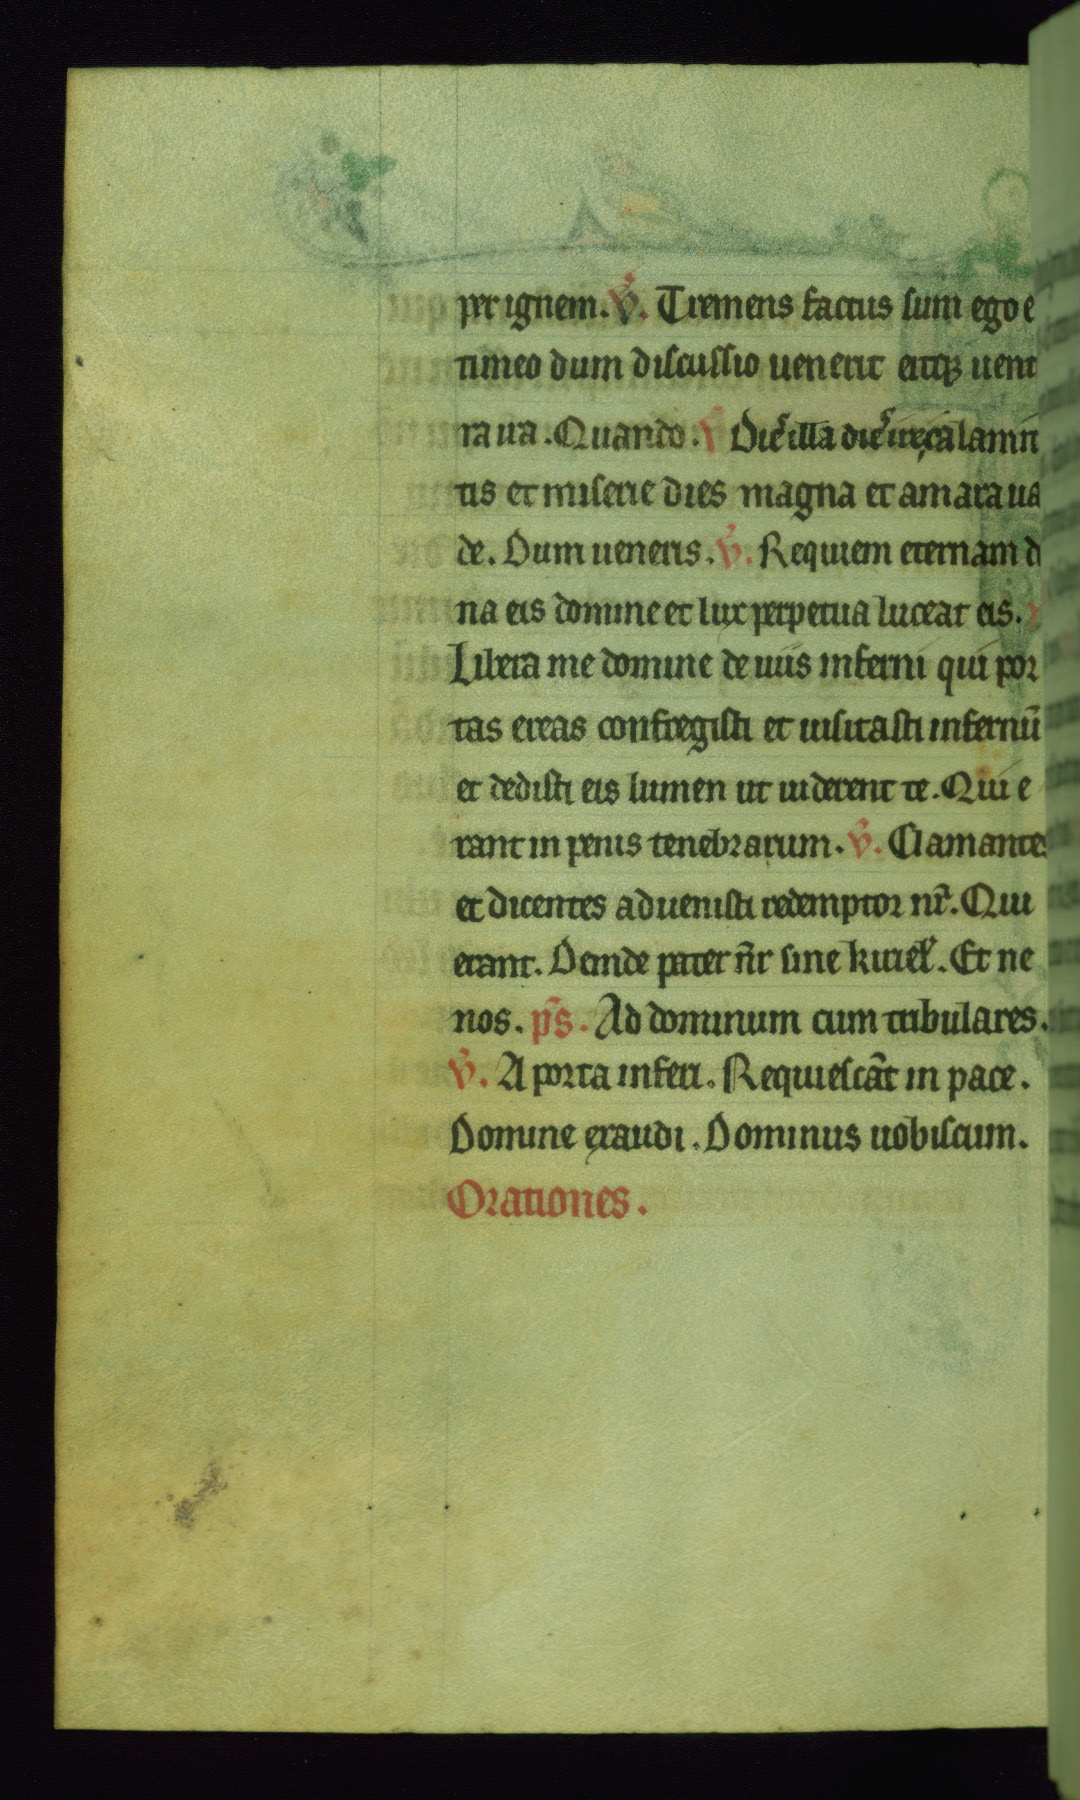 per ignem. V̄. Tremens factus sum ego e
timeo dum discussio uenerit atq3 uent
ra ira. Quando. V̄ Dies illa dies ire calamit
tis et miserie dies magna et amara ua
de. Dum ueneris. V̄. Requiem eternam d
na eis domine et lux perpetua luceat eis.
Libera me domine de uiis inferni qui por
tas ereas confregisti et uisitasti infernū
et dedisti eis lumen ut uiderent te. Qui e
rant in penis tenebrarum. V̄. Clamantes
et dicentes aduenisti redemptor nr̄. Qui
erant. Deinde pater n̄r sine kiriel̄. Et ne
nos. p̄s. Ad dominum cum tribulares.
V̄. A porta inferi. Requiescāt in pace.
Domine exaudi. Dominus uobiscum.
Orationes.